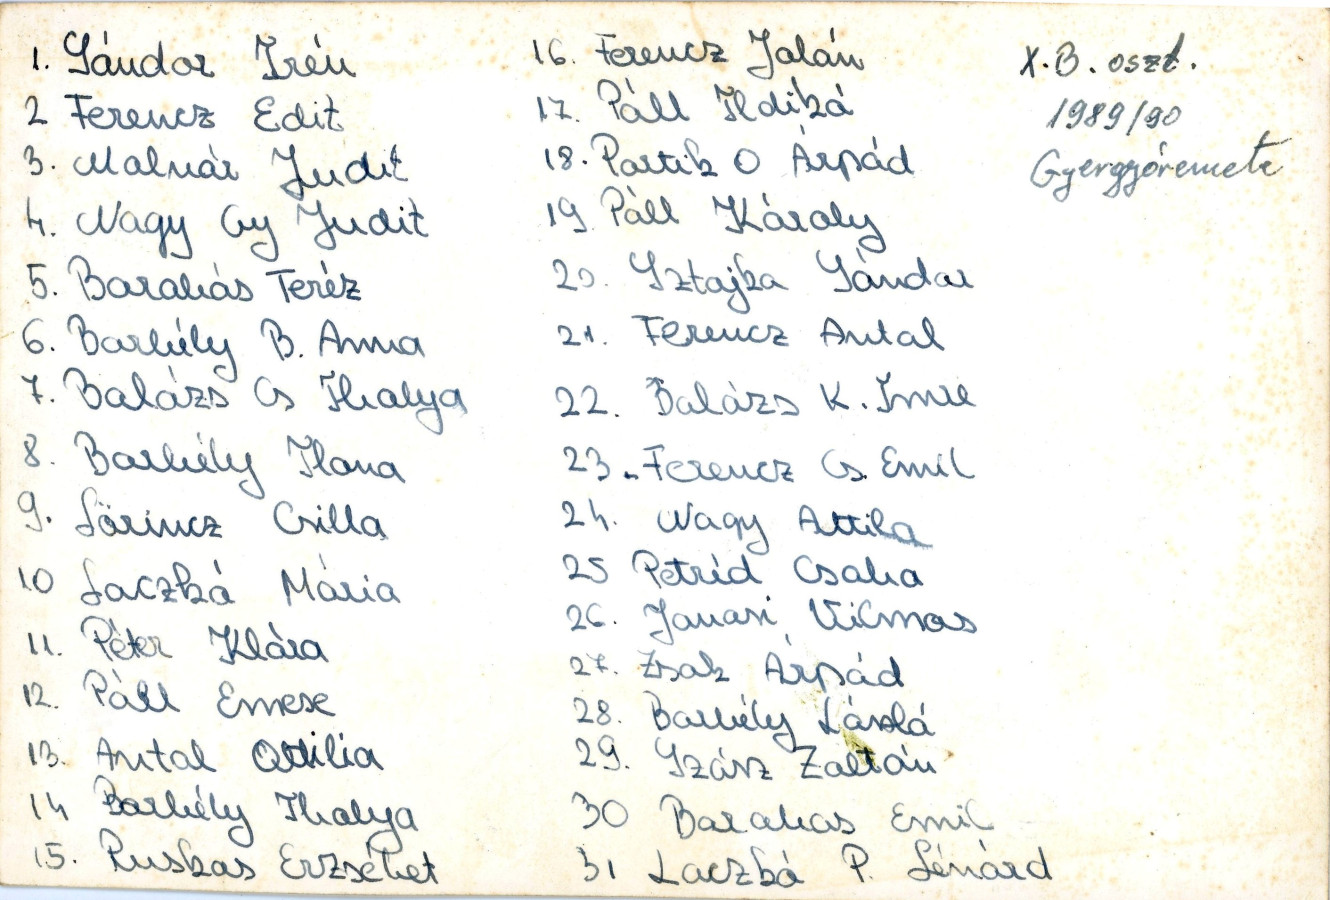 1. Sándor Irén
2 Ferencz Edit
3. Molnár Judit
4. Nagy Gy Judit
5. Barabás Teréz
6. Borbély B. Anna
7. Balázs Cs Ibolya
8. Borbély Ilona
9. Lörincz Csilla
10 Laczkó Mária
11. Péter Klára
12. Páll Emese
13. Antal Ottilia
14 Borbély Ibolya
15. Puskas Erzsébet
16. Ferencz Jolán
17. Páll Ildikó
18. Portik O Árpád
19 Páll Károly
20. Sztojka Sándor
21. Ferencz Antal
22. Balázs K. Imre
23. Ferencz Cs. Emil
24. Nagy Attila
25 Petrid Csaba
26. Janosi Vilmos
27. Zsok Árpád
28. Borbély László
29. Szász Zoltán
30 Barabas Emil
31 Laczkó P. Lénárd
X. B. oszt.
1989/90
Gyergyóremete